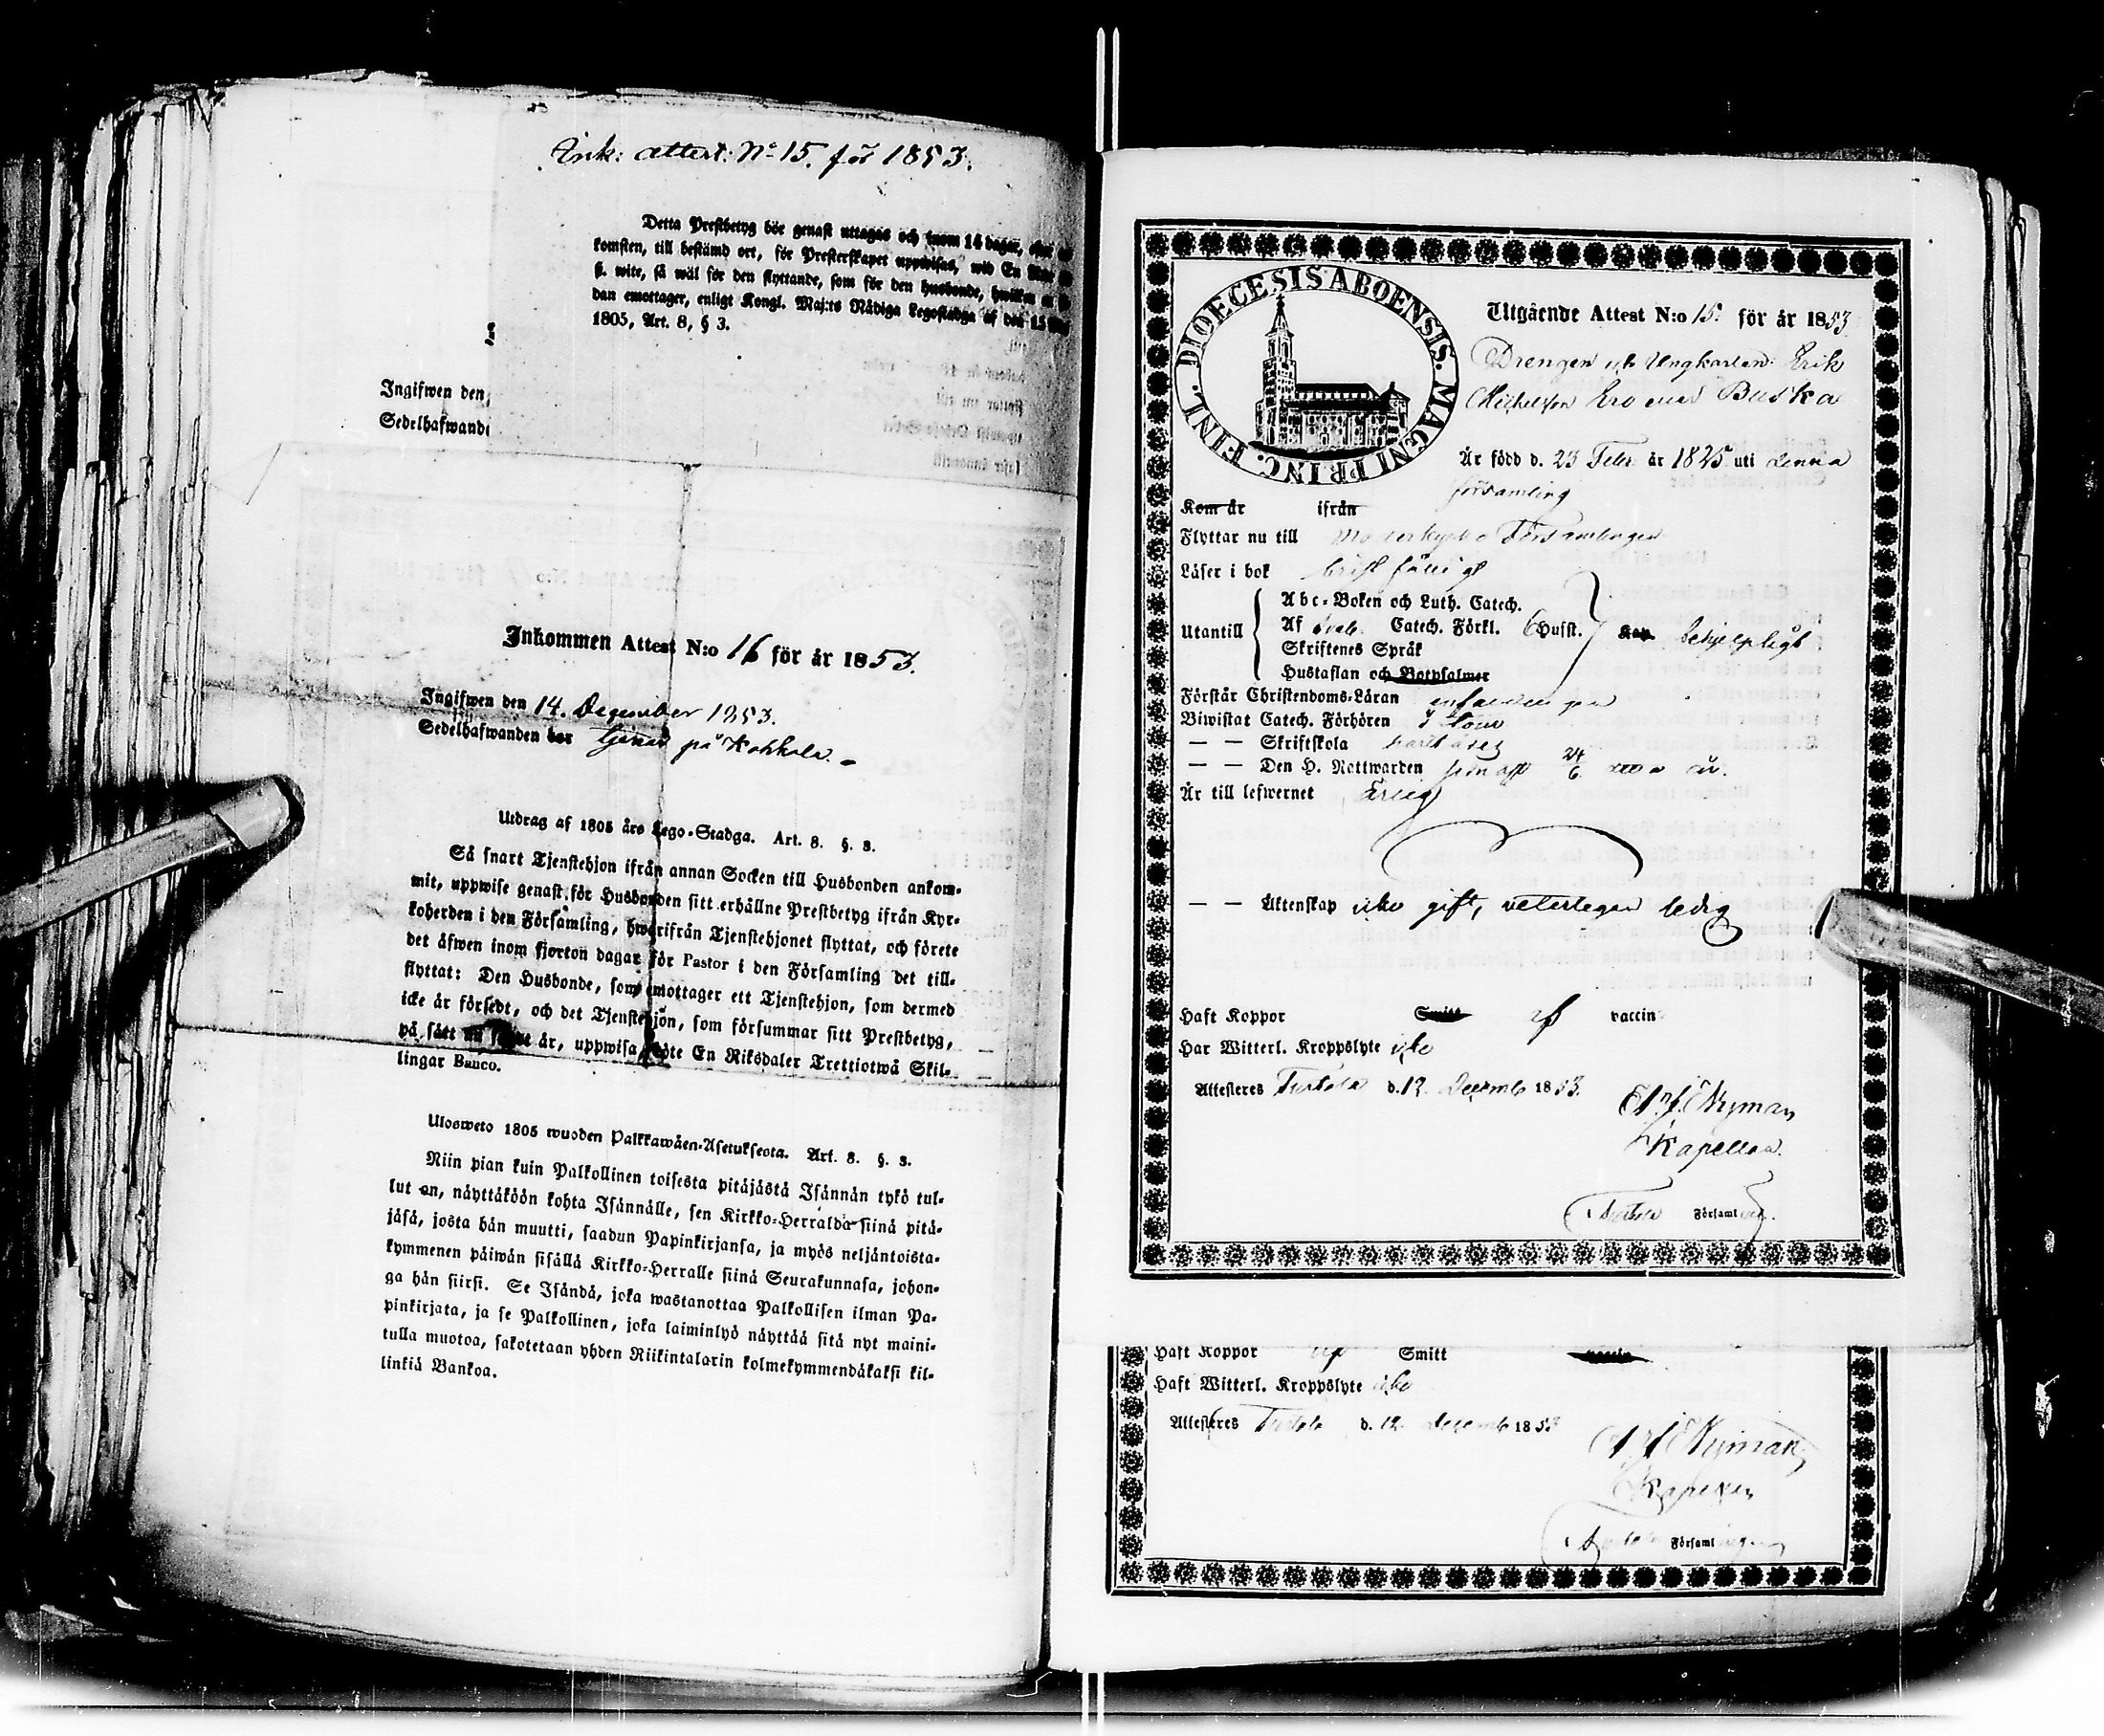 Ink: attest: No 15. för 1853.
Detta Prestbetyg bör genast uttagas och inom 14 dagar, efter
komsten, till bestämd ort, för Presterskapet uppwisas, wid En
ß. wite, så wäl för den flyttande, som för den husbonde, hwilken
dan emottager, enligt Kongl. Maj:ts Nådiga Legostadga af den 15
1805, Art. 8, § 3.
Ingifwen den
Sedelhafwand
Inkommen Attest N:o 16 för år 1853.
Ingifwen den 14. December 1853.
Sedelhafwanden bor tjenar på Kokkola.
Utdrag af 1805 års Lego-Stadga. Art. 8. §. 3.
Så snart Tjenstehjon ifrån annan Socken till Husbonden ankom-
mit, uppwise genast för Husbonden sitt erhållne Prestbetyg ifrån Kyr-
koherden i den Församling, hwarifrån Tjenstehjonet flyttat, och förete
det äfwen inom fjorton dagar för Pastor i den Församling det till-
flyttat: Den Husbonde, som emottager ett Tjenstehjon, som dermed
icke är försedt, och det Tjenstehjon, som försummar sitt Prestbetyg,
på sätt nu är, uppwisa, böte En Riksdaler Trettiotwå Skil-
lingar Banco.
Ulosweto 1805 wuoden Palkkawäen-Asetuksesta. Art. 8. §. 3.
Niin pian kuin Palkollinen toisesta pitäjästä Isännän tykö tul-
lut on, näyttäköön kohta Isännälle, sen Kirkko-Herralda siinä pitä-
jäsä, josta hän muutti, saadun Papinkirjansa, ja myös neljäntoista-
kymmenen päiwän sisällä Kirkko-Herralle siinä Seurakunnasa, johon-
ga hän siirsi. Se Isändä, joka wastanottaa Palkollisen ilman Pa-
pinkirjata, ja se Palkollinen, joka laiminlyö näyttää sitä nyt maini-
tulla muotoa, sakotetaan yhden Riikintalarin kolmekymmendäkaksi kil-
linkiä Bankoa.
DIOECESIS ABOENSIS. MAGNI PRINC. FINL.
Utgående Attest N:o 15. för år 1853
Drengen och Ungkarlen Erik
Michelsson Buska
Är född d. 23 Febr. år 1825 uti denna
församling
Kom år ifrån
Flyttar nu till Moderkyrko Församlingen
Läser i bok
Utantill
Abc-Boken och Luth. Catech.
Af Catech. Förkl. 6 Husst.
Skriftenes Språk
Hustaflan och Botpsalmer
Förstår Christendoms-Läran
Biwistat Catech. Förhören
— — Skriftskola
— — Den H. Nattwarden 24/6 år.
Är till lefwernet ärlig
— — Äktenskap icke gift, veterligen ledig
Haft Koppor Smitt af vaccin
Har Witterl. Kroppslyte icke
Attesteres Turtola d. 12. Decemb 1853.
Nyman
Kapellan.
Turtola Församling.
Haft Koppor af Smitt vaccin
Haft Witterl. Kroppslyte icke
Attesteres Turtola d. 12. decemb 1853
Nyman
Kapellan
Turtola Församling.